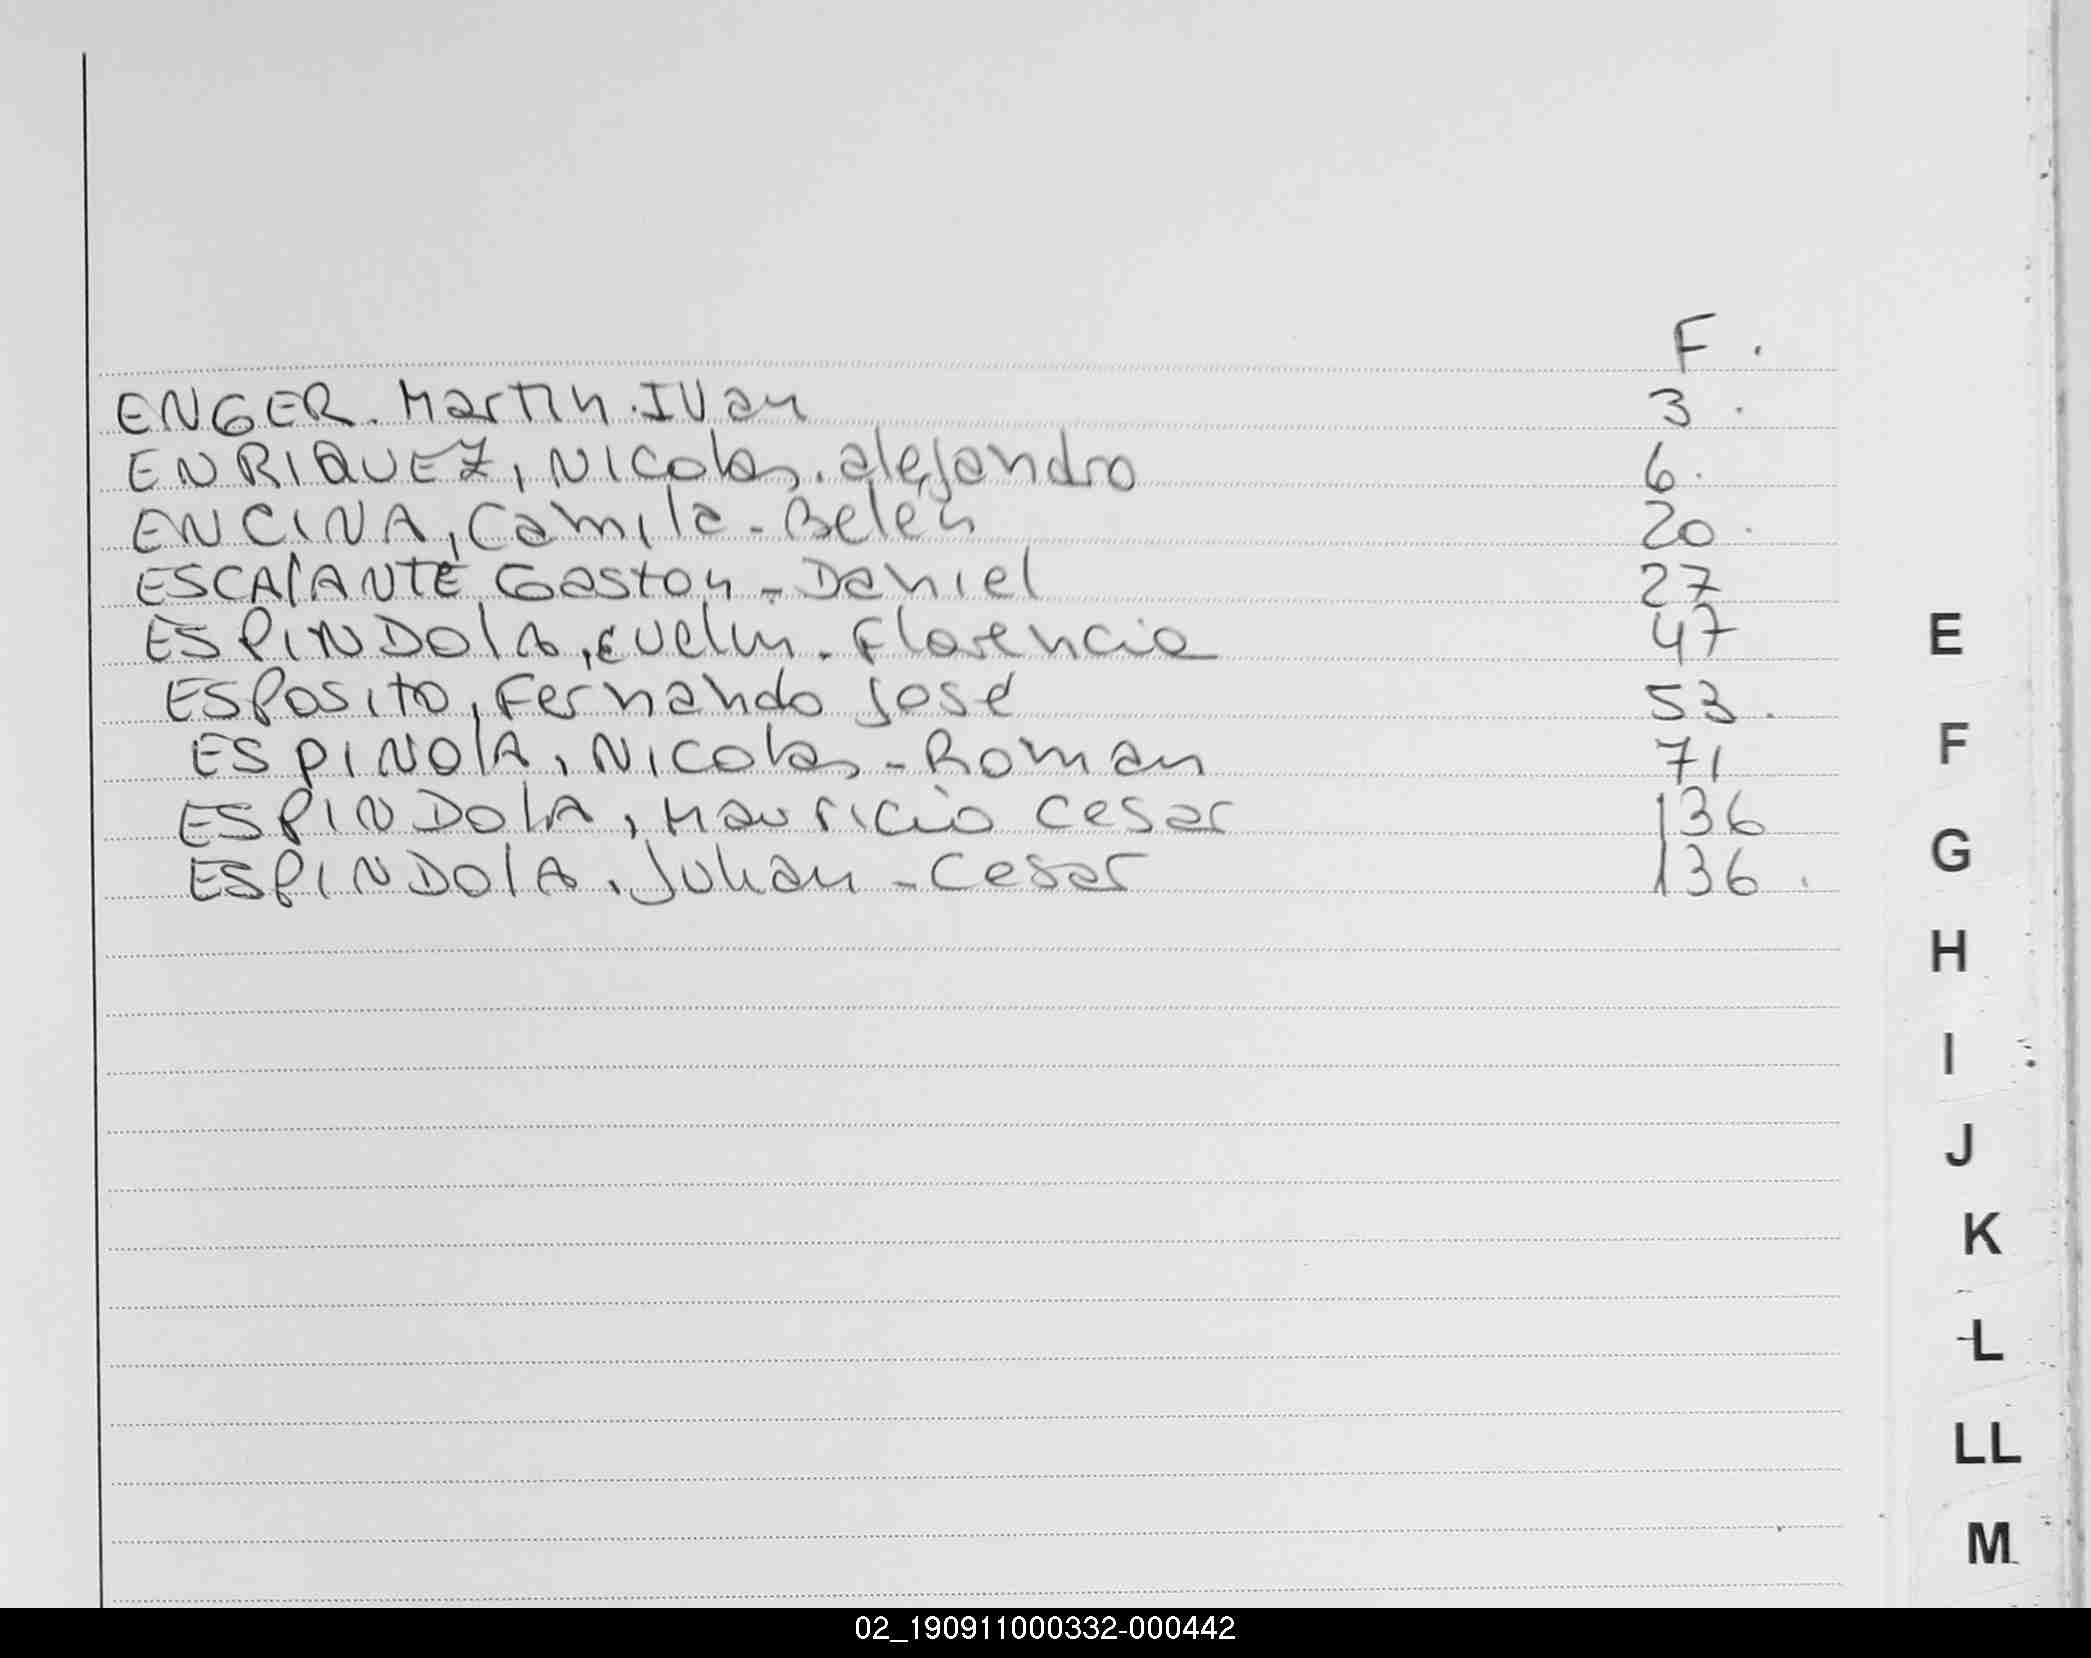 F.
ENGER. Martin. Ivan 3.
ENRIQUEZ, Nicolas. alejandro 6.
ENCINA, Camila - Belén 20.
ESCALANTE, Gaston - Daniel 27
ESPINDOLA, Evelin. Florencia 47
ESPOSITO, Fernando José 53.
ESPINOLA, Nicolas - Roman 71
ESPINDOLA, Mauricio Cesar 136
ESPINDOLA. Julian - Cesar 136.
E
F
G
H
I
J
K
L
LL
M
02_190911000332-000442